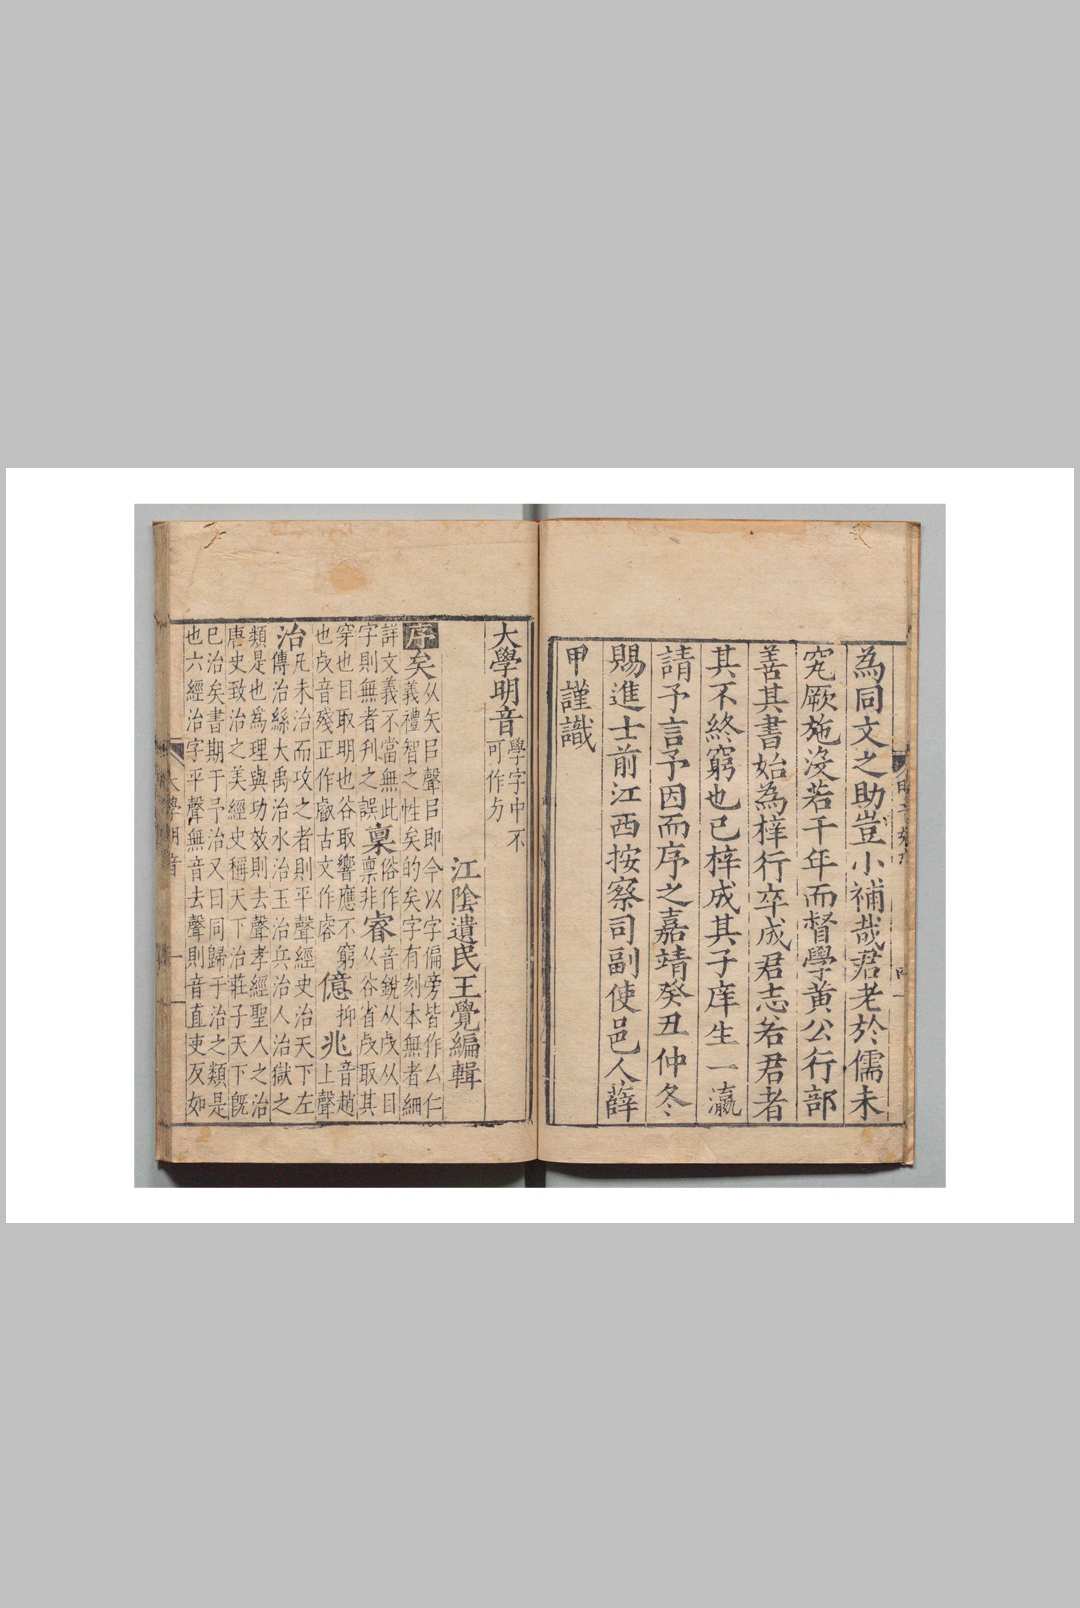 為同文之助豈小補哉君老於儒未
究厥施沒若干年而督學黃公行部
善其書始為梓行卒成君志若君者
其不終窮也已梓成其子庠生一瀛
請予言予因而序之嘉靖癸丑仲冬
賜進士前江西按察司副使邑人薛
甲謹識
大學明音學字中不
可作𭕄
江陰遺民王覺編輯
序矣从矢㠯聲㠯即今以字偏旁皆作厶仁
義禮智之性矣的矣字有刻本無者細
詳文義不當無此俗作音銳从𣦵从目
字則無者刋之誤稟稟非睿从谷省𣦵取其
穿也目取明也谷取響應不窮億抑兆音趙
也𣦵音殘正作叡古文作睿上聲
治凡未治而攻之者則平聲經史治天下左
傳治絲大禹治水治玉治兵治人治獄之
類是也為理與功效則去聲孝經聖人之治
唐史致治之美經史稱天下治莊子天下旣
已治矣書期于予治又曰同歸于治之類是
也六經治字平聲無音去聲則音直吏反如
大學明音
一